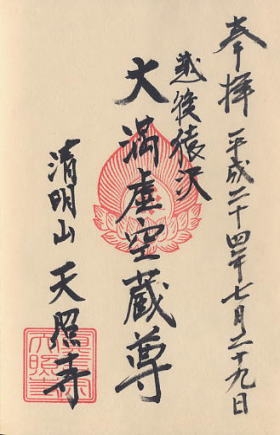 奉拝 平成二十四年七月二十九日
越後猿沢
大満虚空蔵尊
清明山 天照寺